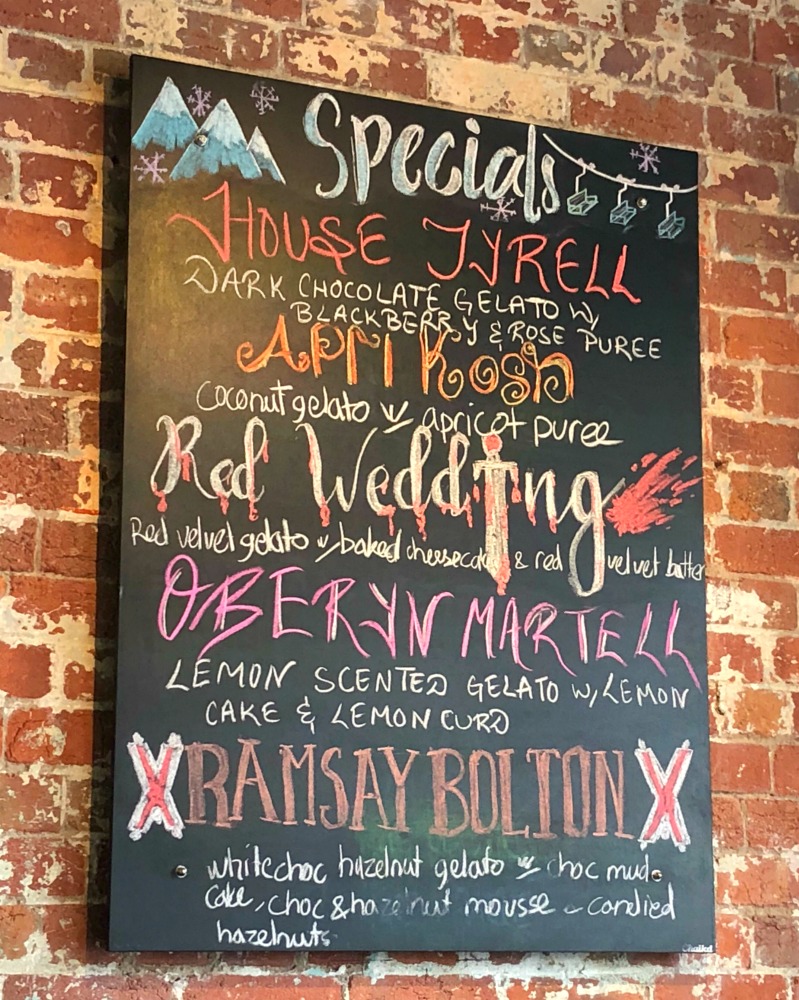 Specials
HOUSE TYRELL
DARK CHOCOLATE GELATO W/
BLACKBERRY & ROSE PUREE
APRI KOSh
coconut gelato w/ apricot puree
Red Wedding
Red velvet gelato w/ baked cheesecake & red velvet batter
OBERYN MARTELL
LEMON SCENTED GELATO W/ LEMON
CAKE & LEMON CURD
RAMSAY BOLTON
white choc hazelnut gelato w choc mud
cake, choc & hazelnut mousse - candied
hazelnuts
Chalked